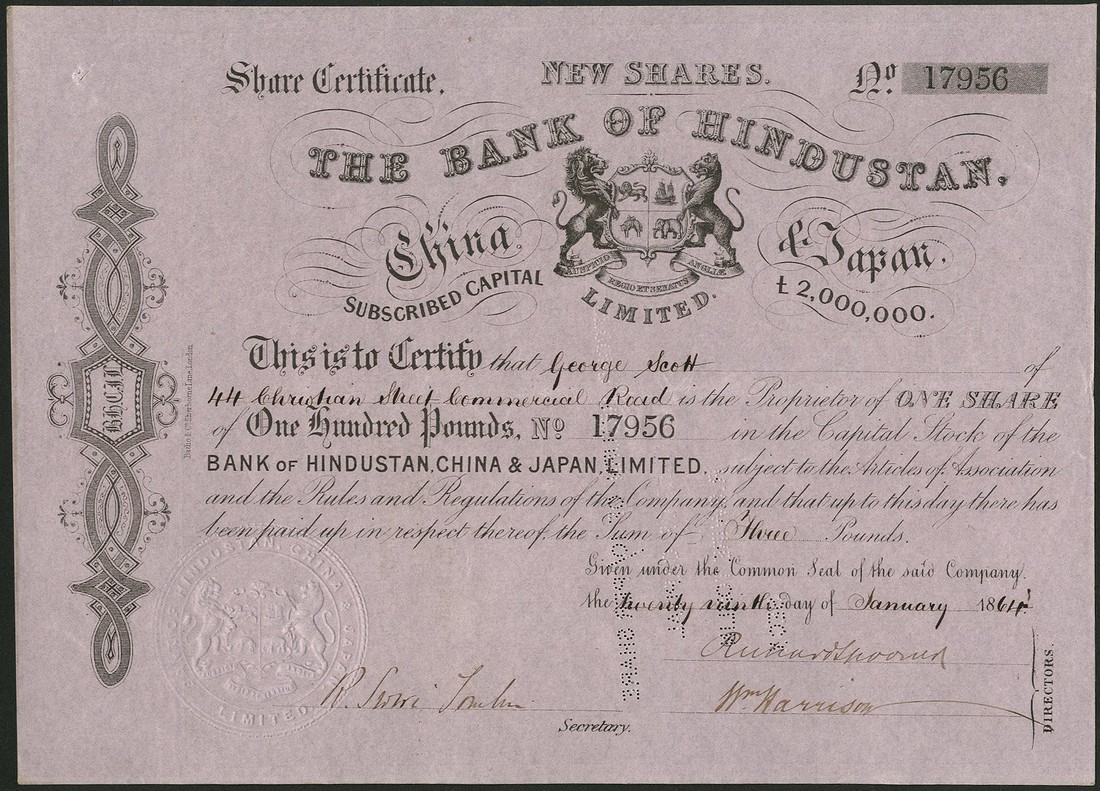 Share Certificate.
NEW SHARES.
No. 17956
THE BANK OF HINDUSTAN,
China, & Japan.
AUSPICIO REGIS ET SENATUS ANGLIÆ
SUBSCRIBED CAPITAL £2,000,000.
LIMITED.
This is to Certify that George Scott of
44 Christian Street Commercial Road is the Proprietor of ONE SHARE
of One Hundred Pounds, No 17956 in the Capital Stock of the
BANK OF HINDUSTAN, CHINA & JAPAN, LIMITED. subject to the Articles of Association
and the Rules and Regulations of the Company, and that up to this day there has
been paid up in respect thereof, the Sum of Three Pounds.
Given under the Common Seal of the said Company.
the twenty ninth day of January 1864
Wm Harrison
DIRECTORS.
Secretary.
BHCJL
HINDUSTAN, CHINA & JAPAN
LIMITED